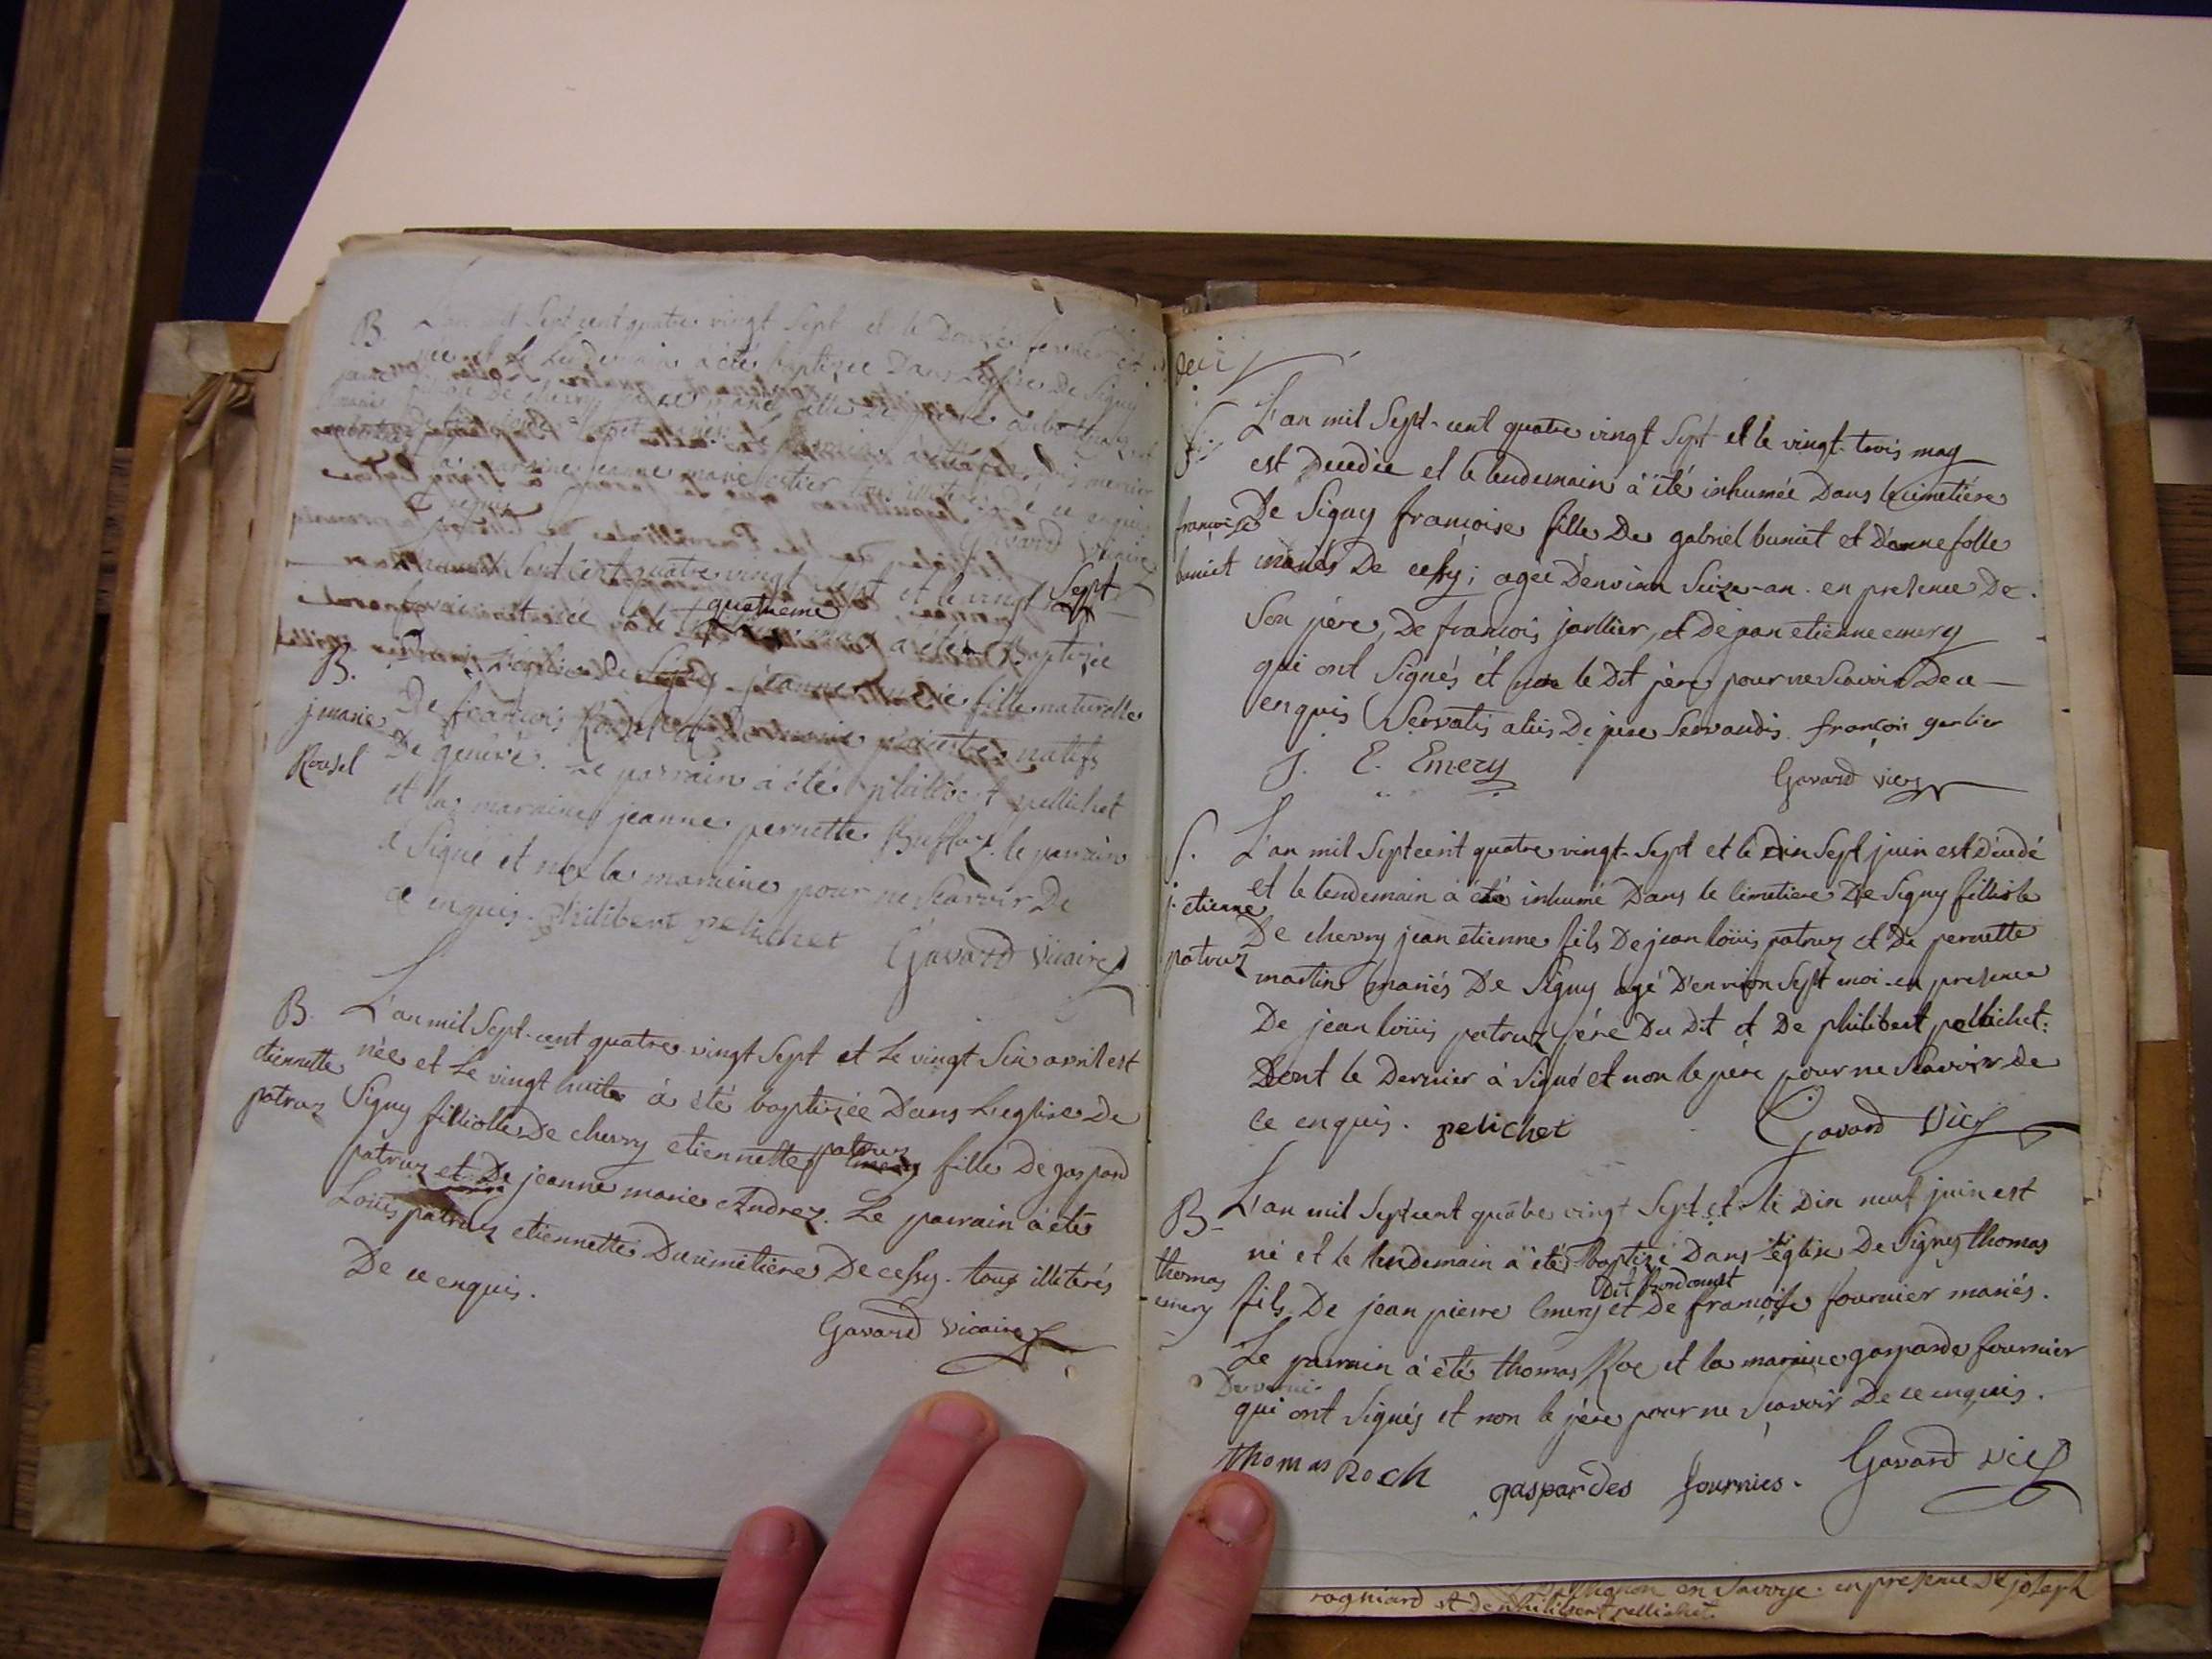 B. L'an mil Sept cent quatre vingt Sept et le Douze fevrier est
née et Le Lendemain à été baptizée Dans L'eglise De Signy
filliole De chevry
la marraine jeanne marie tous illiterés De ce enquis
Gavard Vicaire
Sept cent quatre vingt Sept et le vingt Sept
quatrieme
à été Baptizée
B. l'eglise De Signy jeanne marie fille naturelle
j marie De françois natifs
Rousel De genéve. Le parrain à été philibert pellichet
et la marraine jeanne pernette Buffaz. le parrain
à Signé et non la marraine pour ne Scavoir De
ce enquis. philibert pelichet Gavard Vicaire
B. L'an mil Sept-cent quatre-vingt Sept et Le vingt Six avril est
etiennette née et Le vingt huit à été baptizée Dans L'eglise De
patruz Signy filliolle De chevry etiennette patruz fille De gaspard
patruz et De jeanne marie Andrez. Le parrain à été
Louis patruz etiennette Ducimetiere De cessy. tous illiterés
De ce enquis.
Gavard Vicaire
S. L'an mil Sept-cent quatre vingt Sept et le vingt-trois may
est Decedée et le lendemain à été inhumée Dans le cimetiére
françoise De Signy françoise fille De gabriel buniet et D'anne folle
buniet mariés De cessy; agée D'environ Seize-an. en presence De
Son pére, De françois jarllier, et De jean etienne emery
qui ont Signés et non le Dit pére pour ne Scavoir De ce
enquis (Servatis aliis De jure Servandis. françois garlier
J. E. Emery Gavard vic
S. L'an mil Sept cent quatre vingt-Sept et le Dix Sept juin est Décedé
et le lendemain à été inhumé Dans le Cimetiere De Signy filliole
j. etienne De chevry jean etienne fils De jean loüis patruz et De pernette
patruz martin mariés De Signy agé D'environ Sept moi. en presence
De jean loüis patruz pére Du Dit et De philibert pellichet:
Dont le Dernier à Signé et non le pére pour ne Scavoir de
ce enquis. pelichet Gavard Vic
B. L'an mil Sept cent quatre vingt Sept et le Dix neuf juin est
né et le lendemain à été Baptizé Dans l'église De Signy thomas
Dit Bordonnet
thomas emery fils De jean pierre Emery et De françoise fournier mariés.
Le parrain à été thomas Roc et la marraine gasparde fournier
qui ont Signés et non le pére pour ne Scavoir De ce enquis.
thomas Roch gaspardes fournies. Gavard vic
en Savoye. en presence De joseph
rogniard et De philibert pellichet.